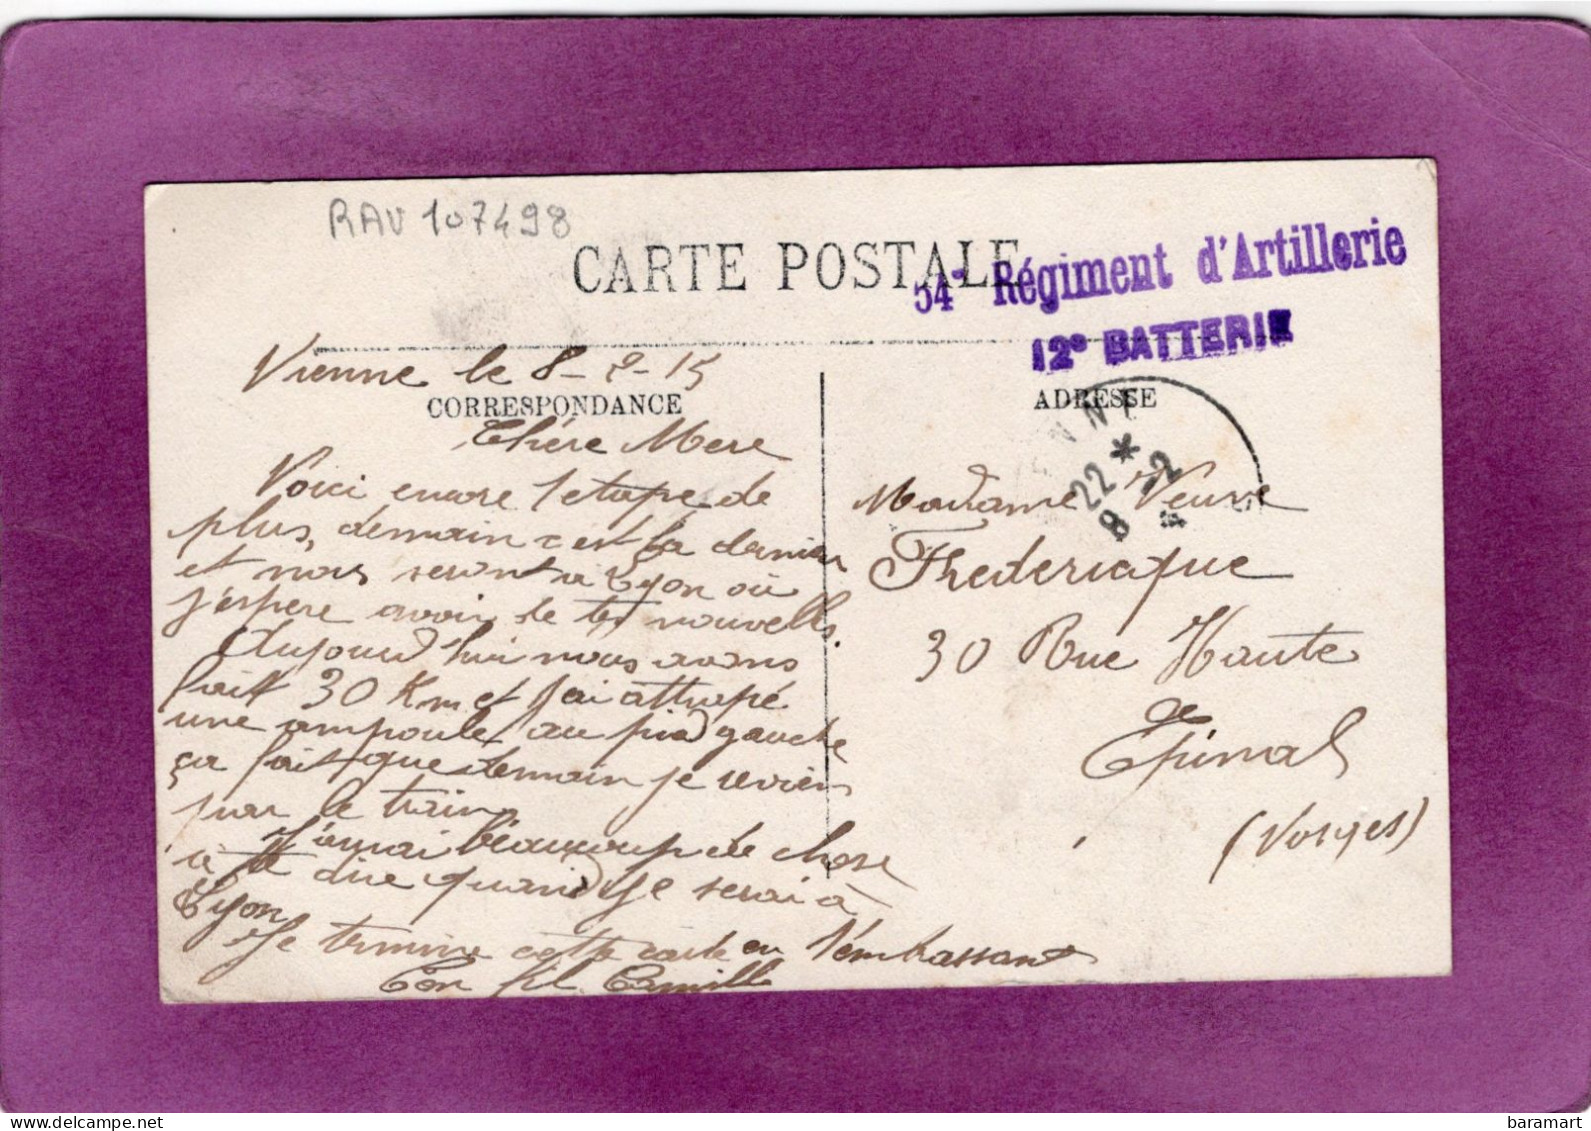 RAV 107498
CARTE POSTALE
54e Régiment d'Artillerie
12e BATTERIE
Vienne le 8-2-15
CORRESPONDANCE
Chére Mere
Voici encore 1 etape de
plus, demain c est la derniere
et nous seront a Lyon où
j'espere avoir de tes nouvelles.
Aujourd'hui nous avons
fait 30 Km et j'ai attrapé
une ampoule au pied gauche
ça fait que demain je reviens
par le train
J'aurai beaucoup de chose
a te dire quand je serai à
Lyon
Je termine cette carte en t'embrassant
Ton fil Camille
ADRESSE
22 *
8 - 2
Madame Veuve
Frederique
30 Rue Haute
Epinal
(Vosges)
baramart